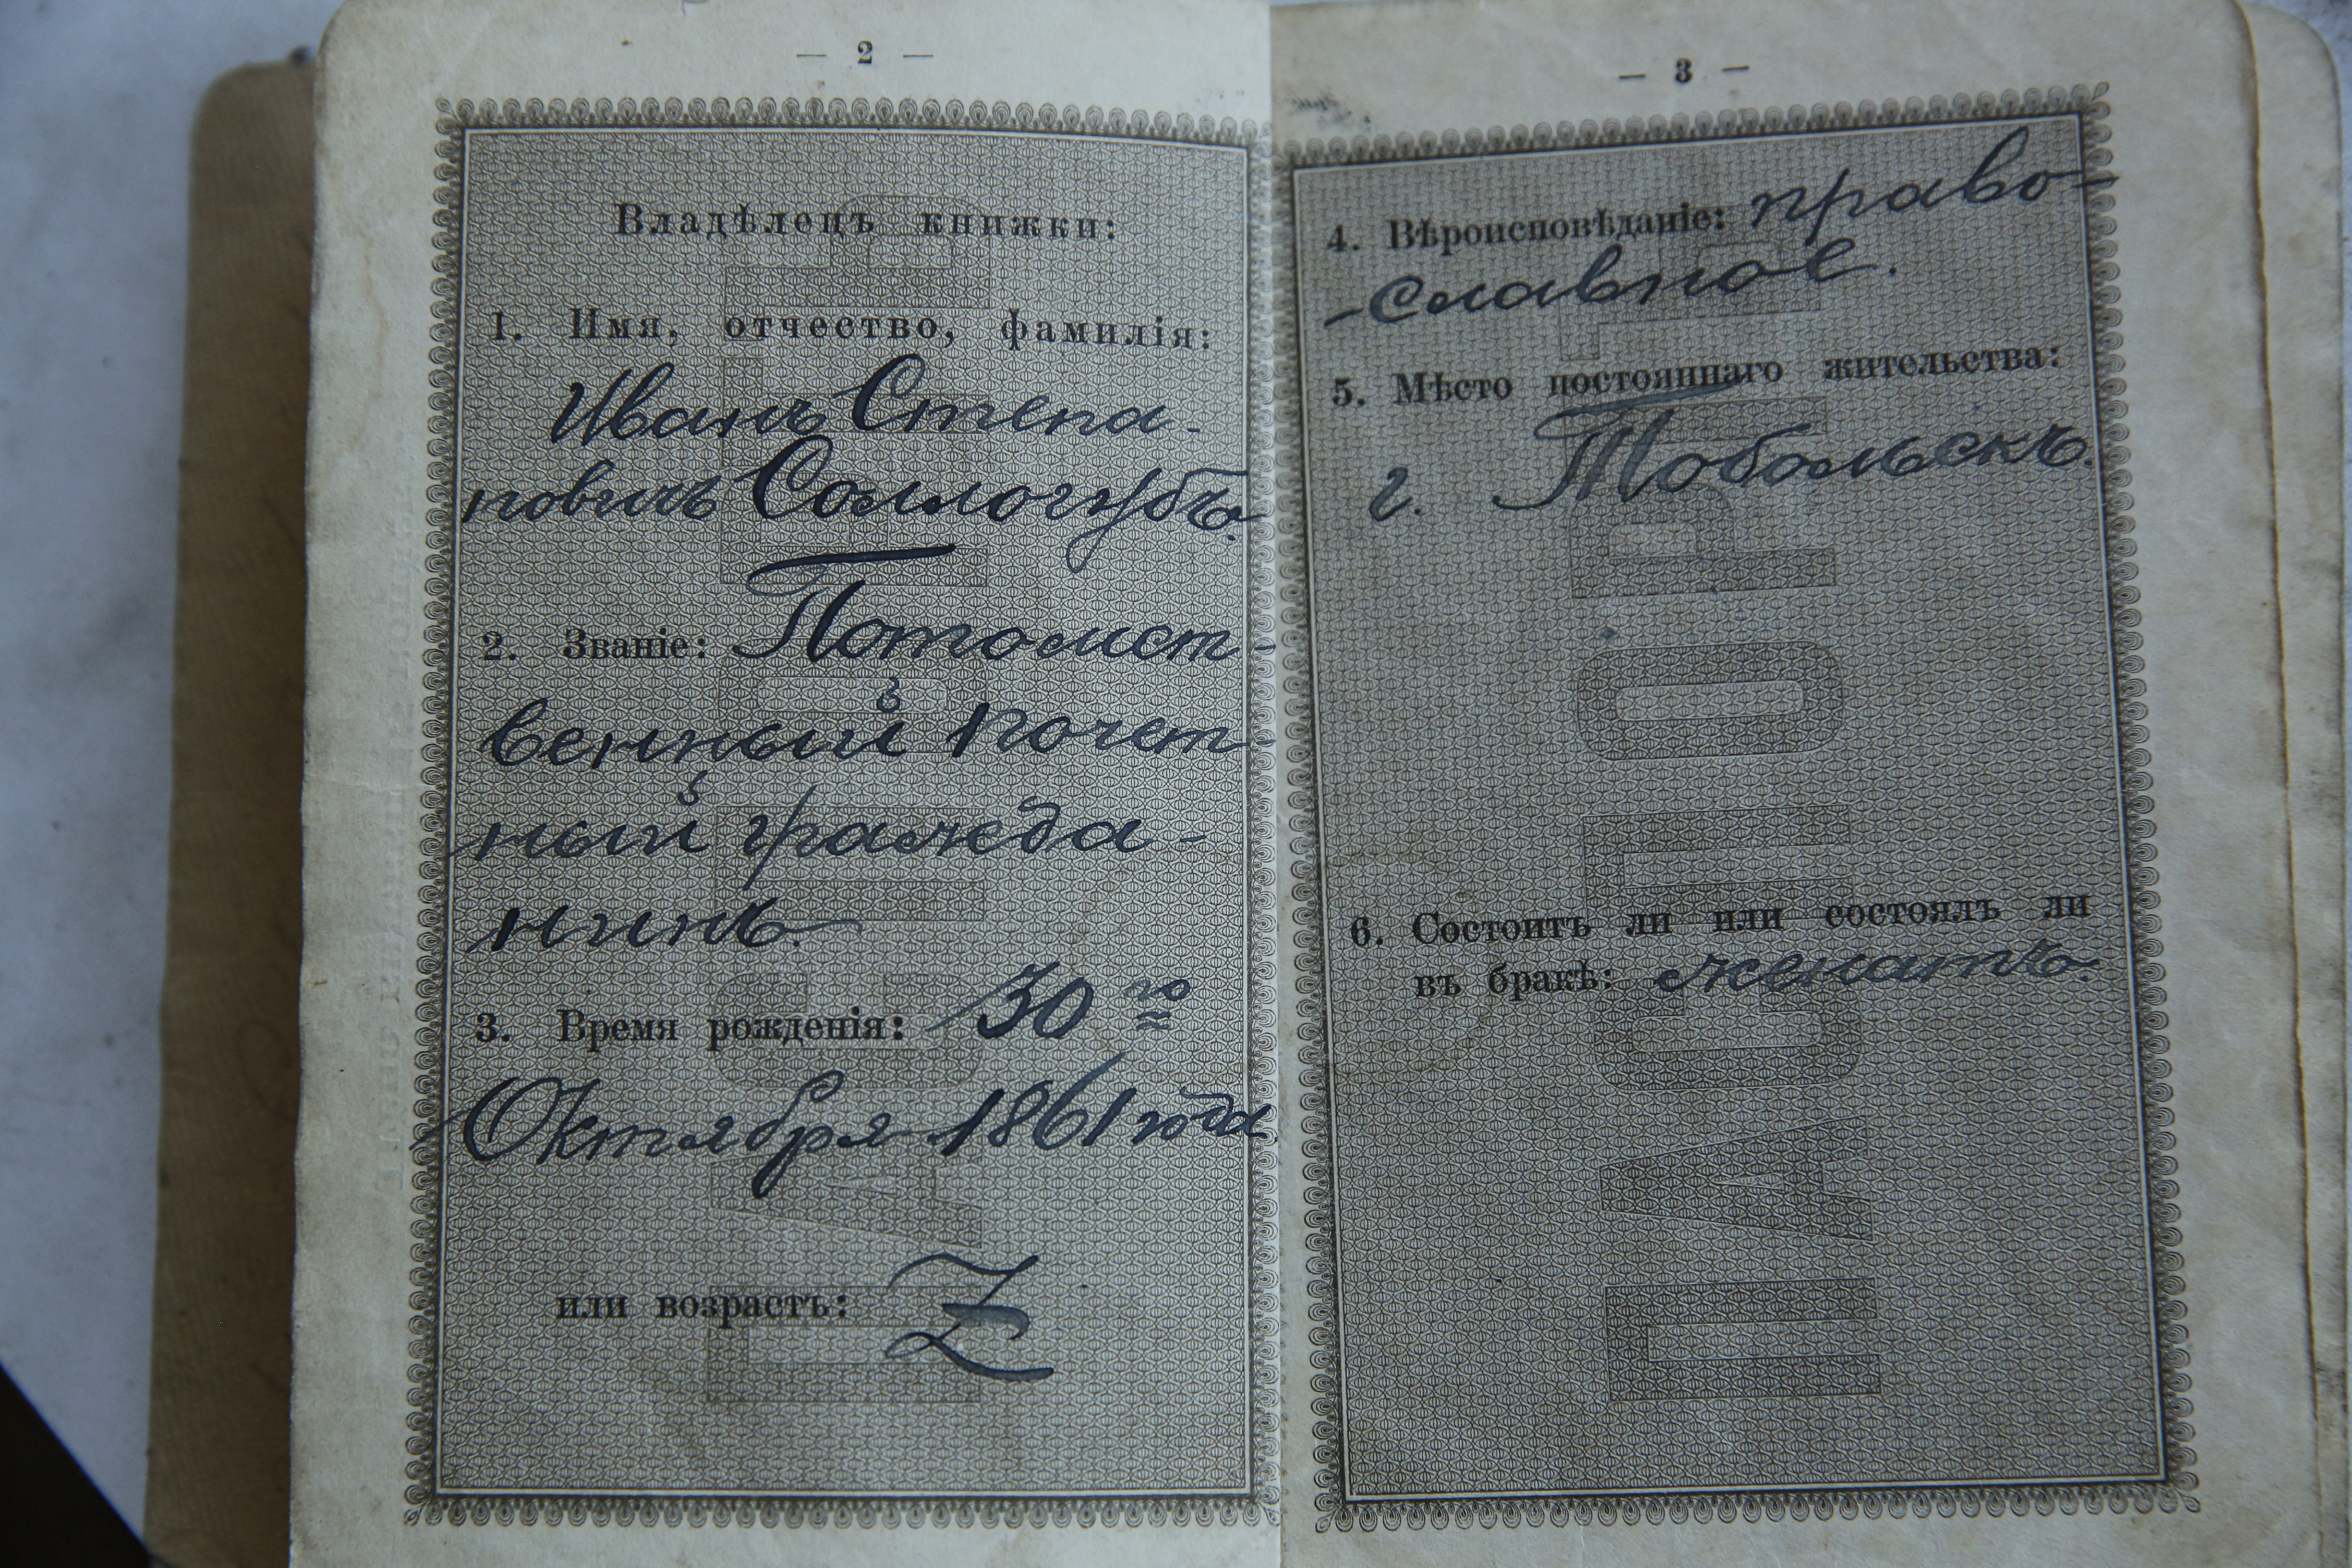 — 2 —
Владѣлецъ книжки:
1. Имя, отчество, фамилія:
Иванъ Степа-
новичъ Соллогубъ.
2. Званіе: Потомст-
венный почет-
ный гражда-
нинъ.
3. Время рожденія: 30 го
Октября 1861 года
или возрастъ: Z
ПАСПОРТЪ
— 3 —
4. Вѣроисповѣданіе: право-
-славное.
5. Мѣсто постояннаго жительства:
г. Тобольскъ.
6. Состоитъ ли или состоялъ ли
въ бракѣ: женатъ.
ПАСПОРТЪ